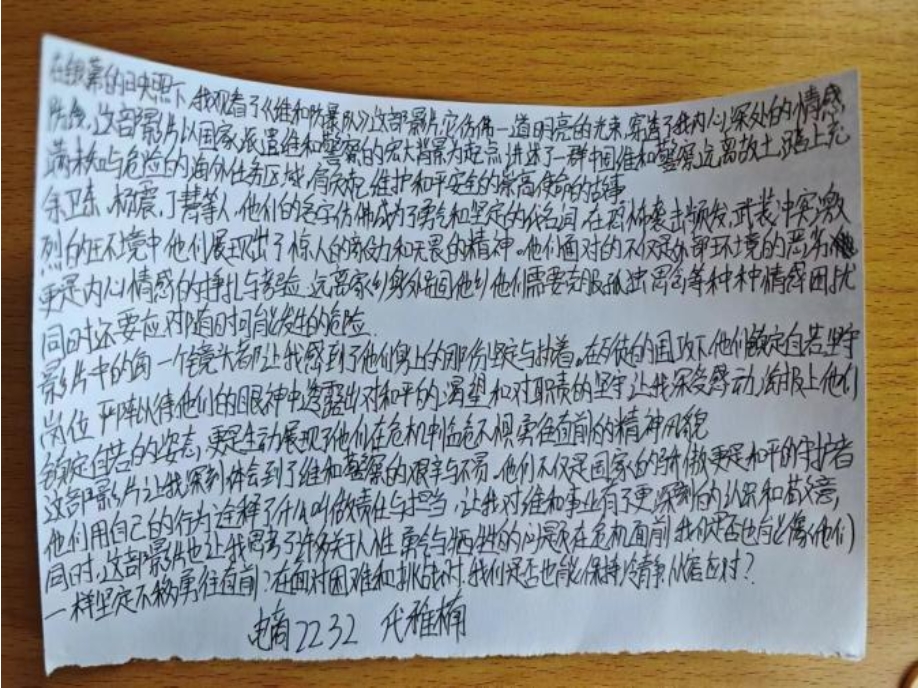 在银幕的映照下,我观看了《维和防暴队》这部影片,它仿佛一道明亮的光束,穿透了我内心深处的情感
防线,这部影片以国家派遣维和警察的宏大背景为起点,讲述了一群中国维和警察远离故土,踏上充
满未知与危险的海外任务区域,肩负起维护和平安全的崇高使命的故事
余卫东、杨震、丁慧等人,他们的名字仿佛成为了勇气和坚定的代名词,在恐怖袭击频发,武装冲突激
烈的环境中他们展现出了惊人的毅力和无畏的精神。他们面对的不仅是外部环境的恶劣
更是内心情感的挣扎与考验,远离家乡身处异国他乡他们需要克服孤独思念等种种情绪困扰
同时还要应对随时可能发生的危险
影片中的每一个镜头都让我感到了他们身上的那份坚定与执着。在的围攻下他们镇定自若坚守
岗位 严阵以待他们的眼神中透露出对和平的渴望和对职责的坚守,让我深受感动,海报上他们
镇定自若的姿态,更是生动展现了他们在危机中临危不惧勇往直前的精神风貌
这部影片让我深刻体会到了维和警察的艰辛与不易。他们不仅是国家的骄傲更是和平的守护者
他们用自己的行为诠释了什么叫做责任与担当,让我对维和事业有了更深刻的认识和敬意,
同时,这部影片也让我思考了许多关于人性勇气与牺牲的问题在危机面前,我们是否也能像他们
一样坚定不移勇往直前?在面对困难和挑战时,我们是否也能保持冷静从容应对?
电商2232 代雅楠